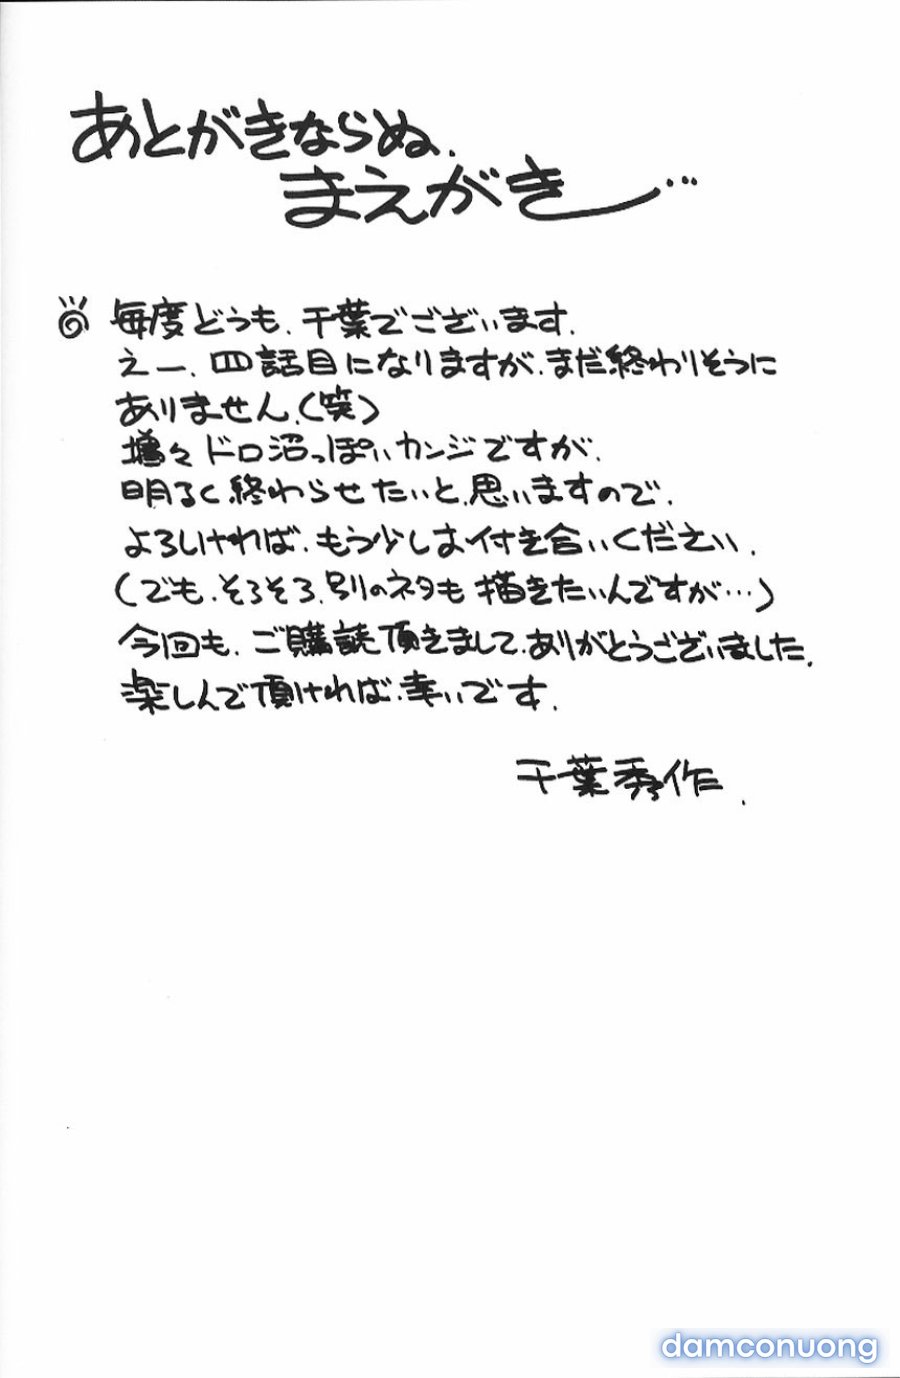 あとがきならぬ、
まえがき…
毎度どうも、千葉でございます。
えー、四話目になりますが、まだ終わりそうに
ありません、(笑)
増々ドロ沼っぽいカンジですが、
明るく終わらせたいと、思いますので、
よろしければ、もう少しお付き合いください、
(でも、そろそろ、別のネタも描きたいんですが…)
今回も、ご購読頂きまして、ありがとうございました、
楽しんで頂ければ、幸いです、
千葉秀作
damconuong